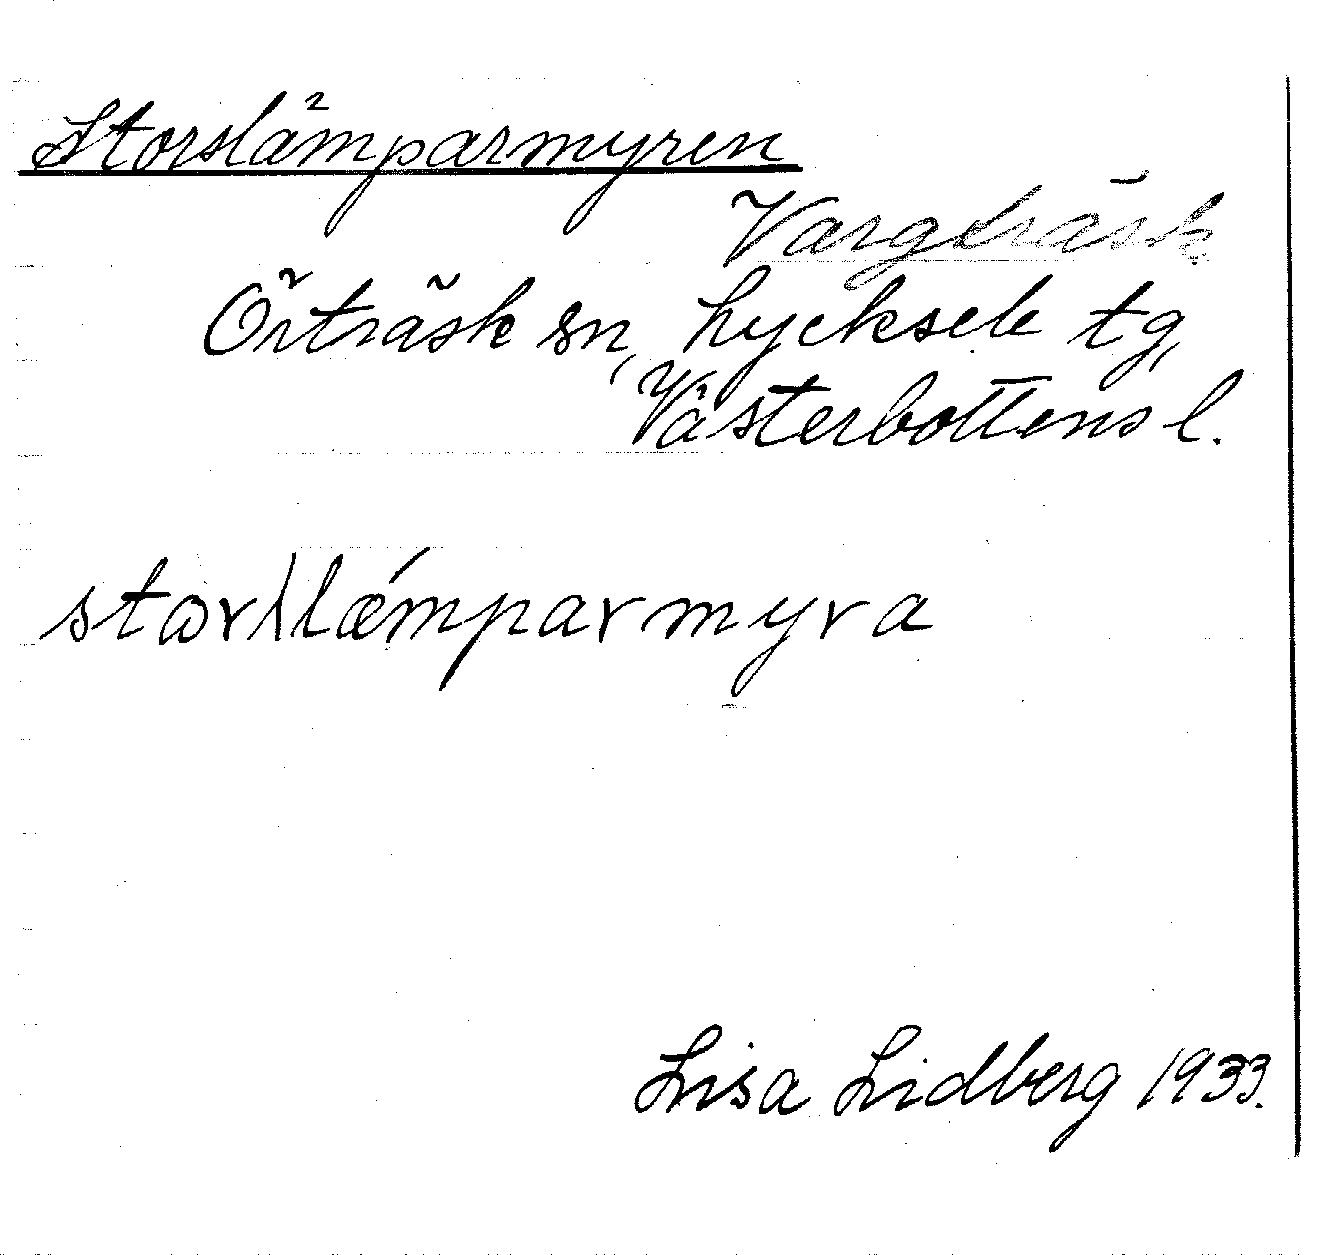 Storslämparmyren
Vargträsk
Örträsk sn, Lycksele tg,
Västerbottens l.
storslæ´mparmyra
Lisa Lidberg 1933.